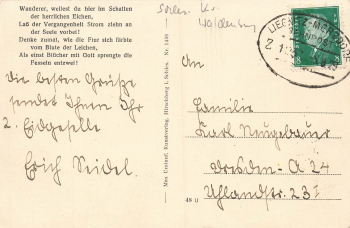 Wanderer, weilest du hier im Schatten
der herrlichen Eichen,
Laß der Vergangenheit Strom ziehn an
der Seele vorbei!
Denke zumal, wie die Flur sich färbte
vom Blute der Leichen,
Als einst Blücher mit Gott sprengte die
Fesseln entzwei!
Die besten Grüße
sendet Ihnen Ihr
2. Eidgeselle
Erich Seidel.
Max Umlauf, Kunstverlag, Hirschberg i. Schles. Nr. 1439
Schles. Kr.
Waldenburg
LIEGNITZ-MERZDORF
8
An
Familie
Karl Neugebauer
Dresden-A 24
Uhlandstr. 23 I